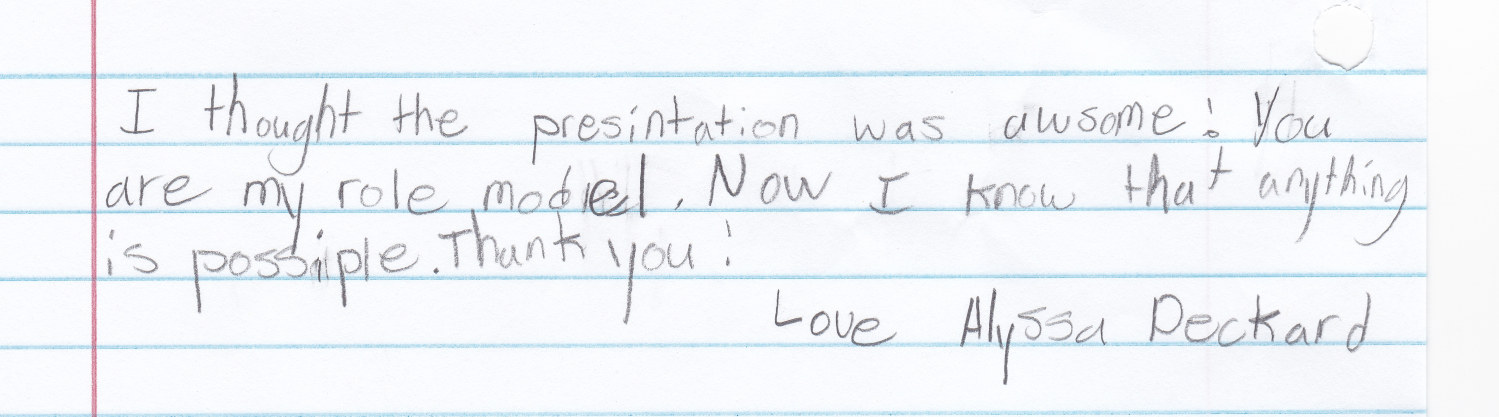 I thought the presintation was awsome! You
are my role model. Now I know that anything
is possiple. Thank you!
Love Alyssa Deckard